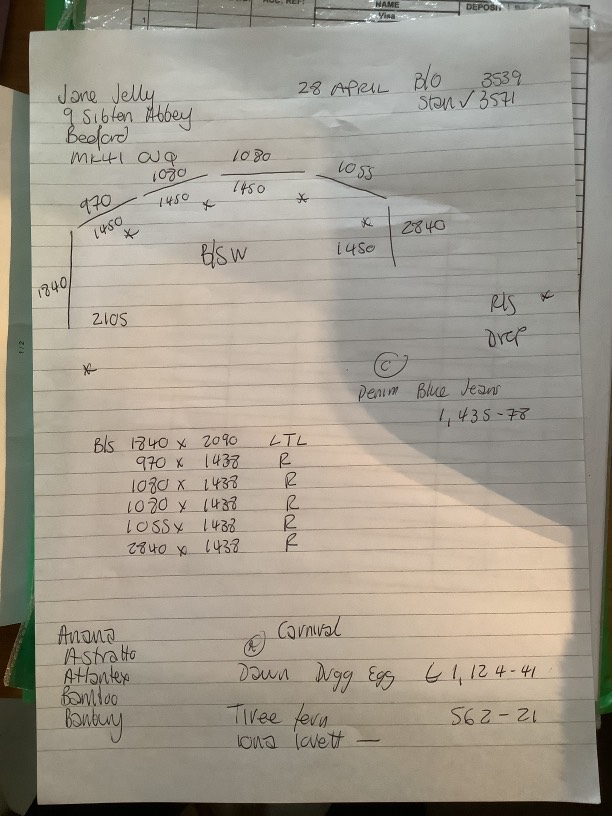 NAME
DEPOSIT
Visa
1
Jane Jelly 28 APRIL B/O 3539
9 Sibton Abbey Stan ✓ 3571
Bedford
MK41
1080 1080 1055
970 1450 * 1450 * *
1450 * 2840
B/SW 1450
1840
2105 R/S *
Drop
* C
Denim Blue Jeans
1,435-78
B/S 1840 x 2090 LTL
970 x 1438 R
1080 x 1438 R
1080 x 1438 R
1055 x 1438 R
2840 x 1438 R
Anana A Carnival
Astratto
Atlantex Dawn Dugg Egg 1,124-41
Bamboo
Banbury Tiree fern 562-21
iona lovett —
1/2